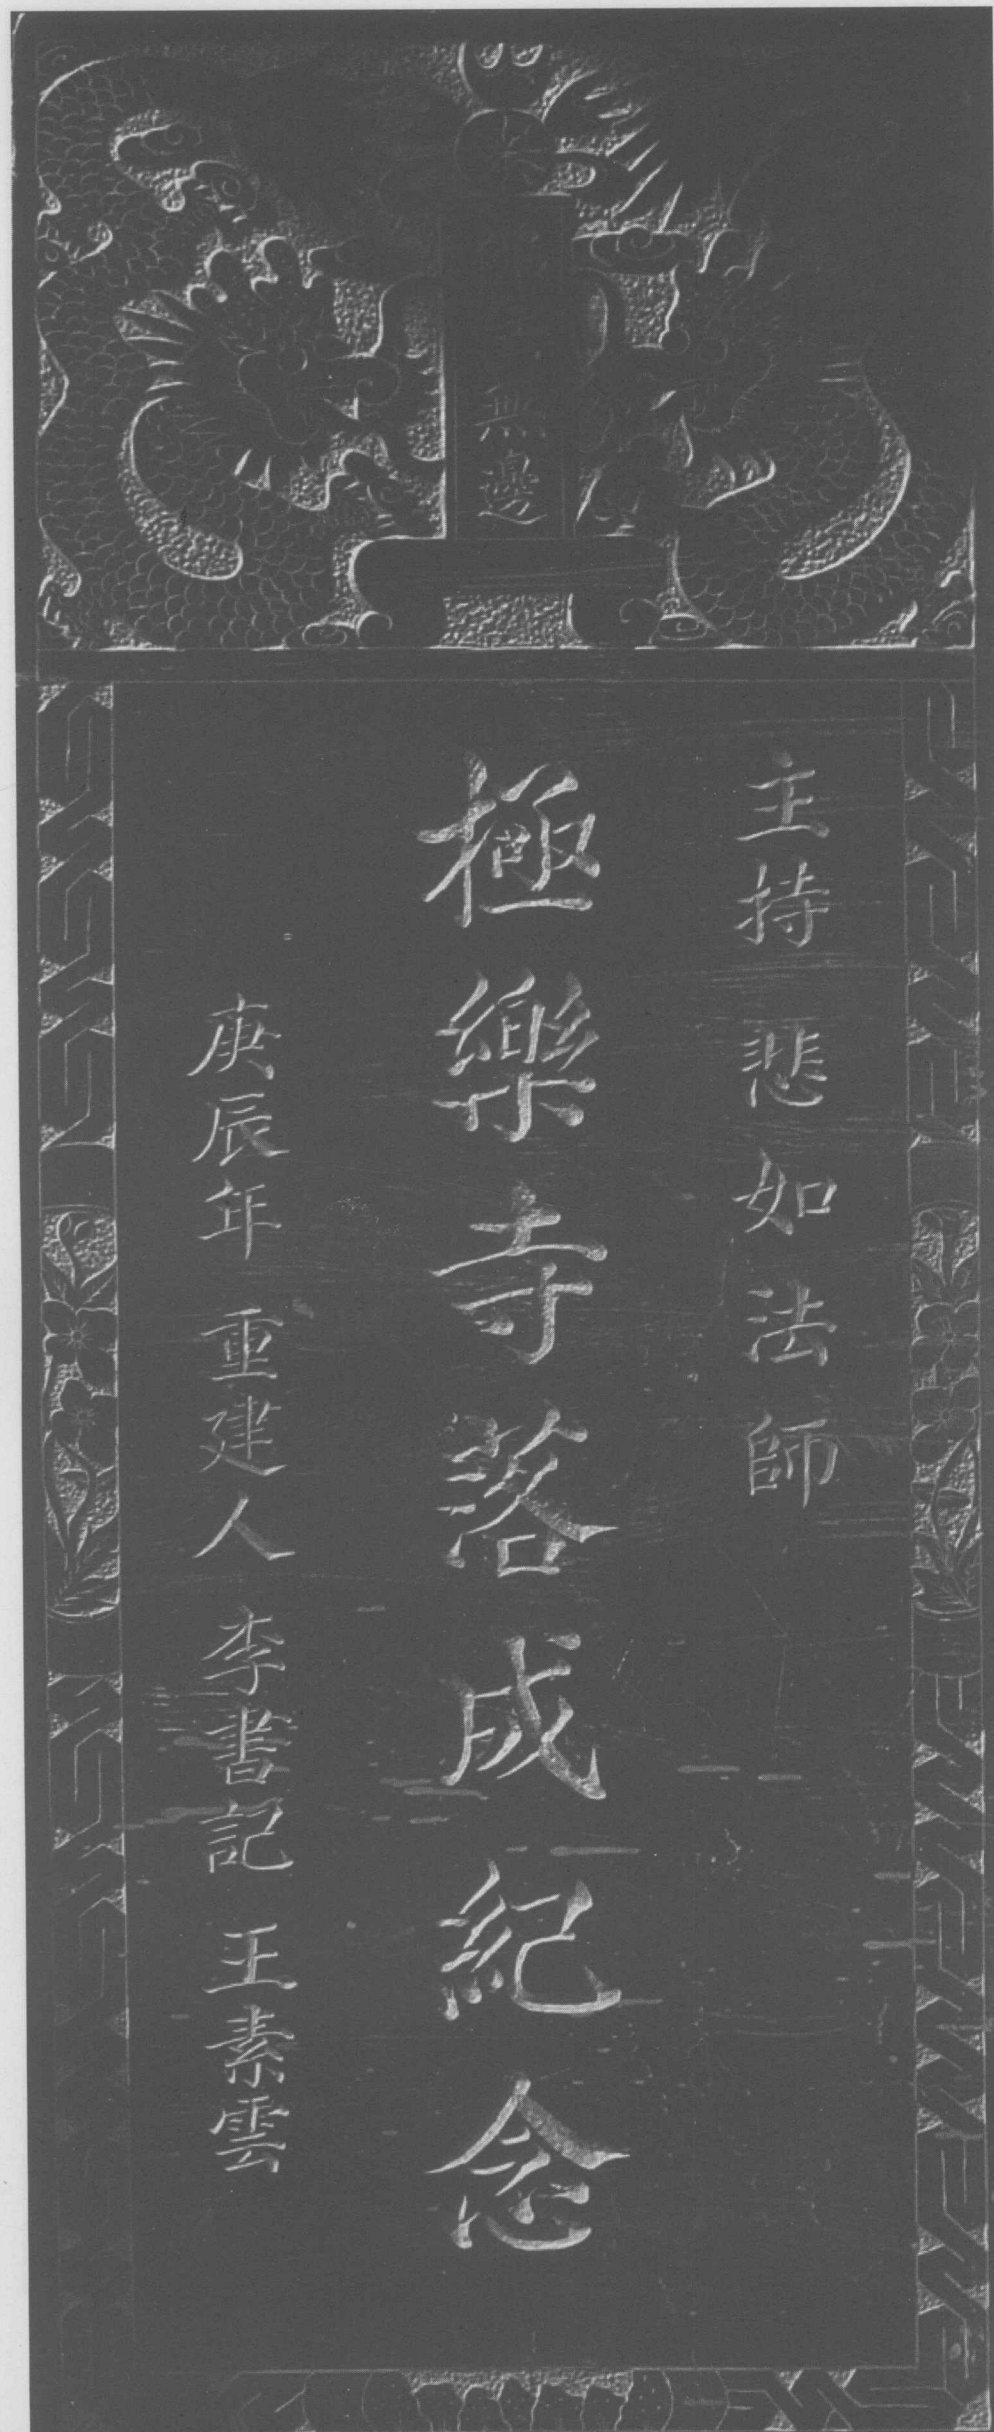 無邊
主持 悲如法師
極樂寺落成紀念
庚辰年 重建人 李書記 王素雲